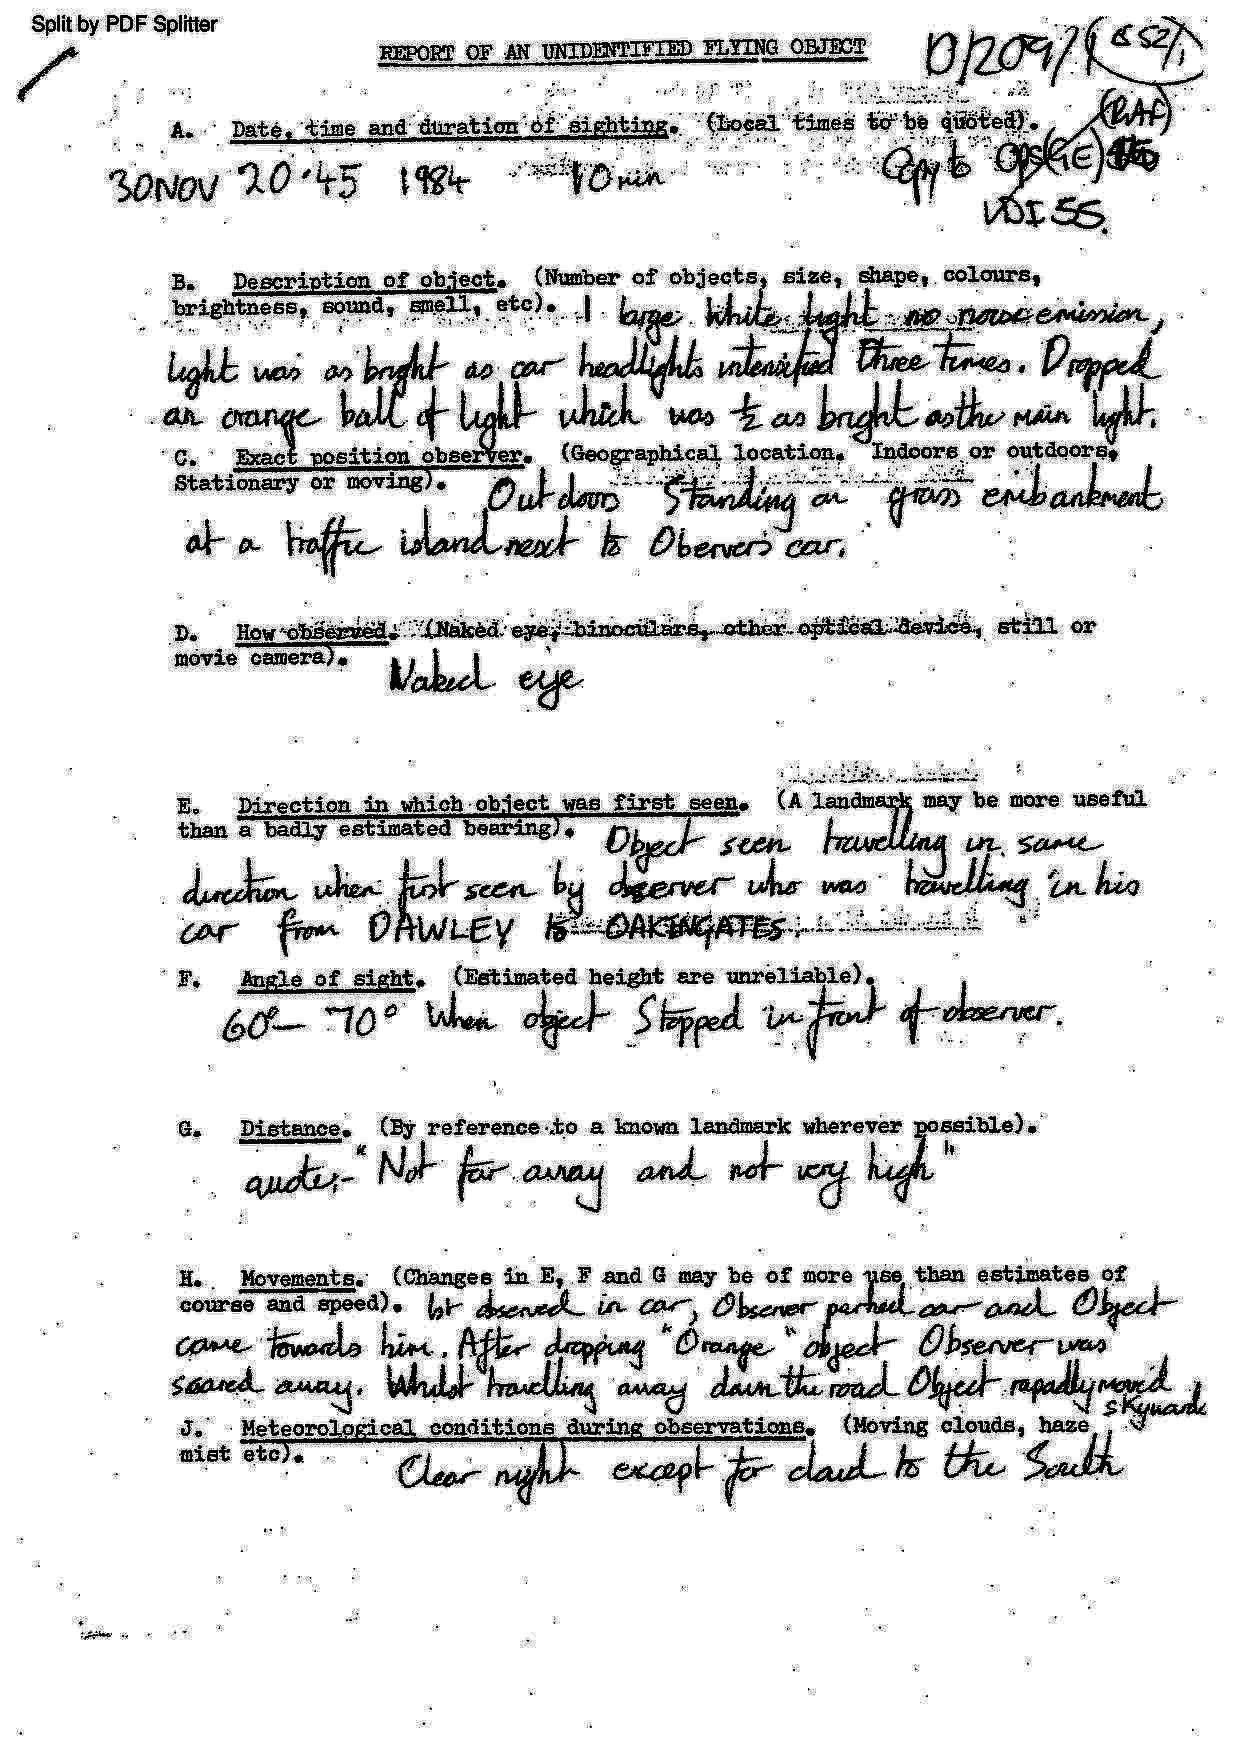 Split by PDF Splitter
REPORT OF AN UNIDENTIFIED FLYING OBJECT
A. Date, time and duration of sighting. (Local times to be quoted).
(RAF)
30 NOV 20.45 1984 10 min
Copy to Ops(GE)
DI 55.
B. Description of object. (Number of objects, size, shape, colours,
brightness, sound, smell, etc). 1 large white light no noise emission,
light was as bright as car headlights intensified three times. Dropped
an orange ball of light which was ½ as bright as the main light.
C. Exact position observer. (Geographical location. Indoors or outdoors,
Stationary or moving). Outdoors Standing on grass embankment
at a traffic island next to Oberver's car.
D. How observed. (Naked eye, binoculars, other optical device, still or
movie camera). Naked eye
E. Direction in which object was first seen. (A landmark may be more useful
than a badly estimated bearing). Object seen travelling in same
direction when first seen by observer who was travelling in his
car from DAWLEY to OAKENGATES.
F. Angle of sight. (Estimated height are unreliable).
60° - 70° When object Stopped in front of observer.
G. Distance. (By reference to a known landmark wherever possible).
quote:- "Not far away and not very high"
H. Movements. (Changes in E, F and G may be of more use than estimates of
course and speed). 1st observed in car, Observer parked car and Object
came towards him. After dropping "Orange" object Observer was
scared away. Whilst travelling away down the road Object rapadly moved
skywards
J. Meteorological conditions during observations. (Moving clouds, haze
mist etc). Clear night except for cloud to the South